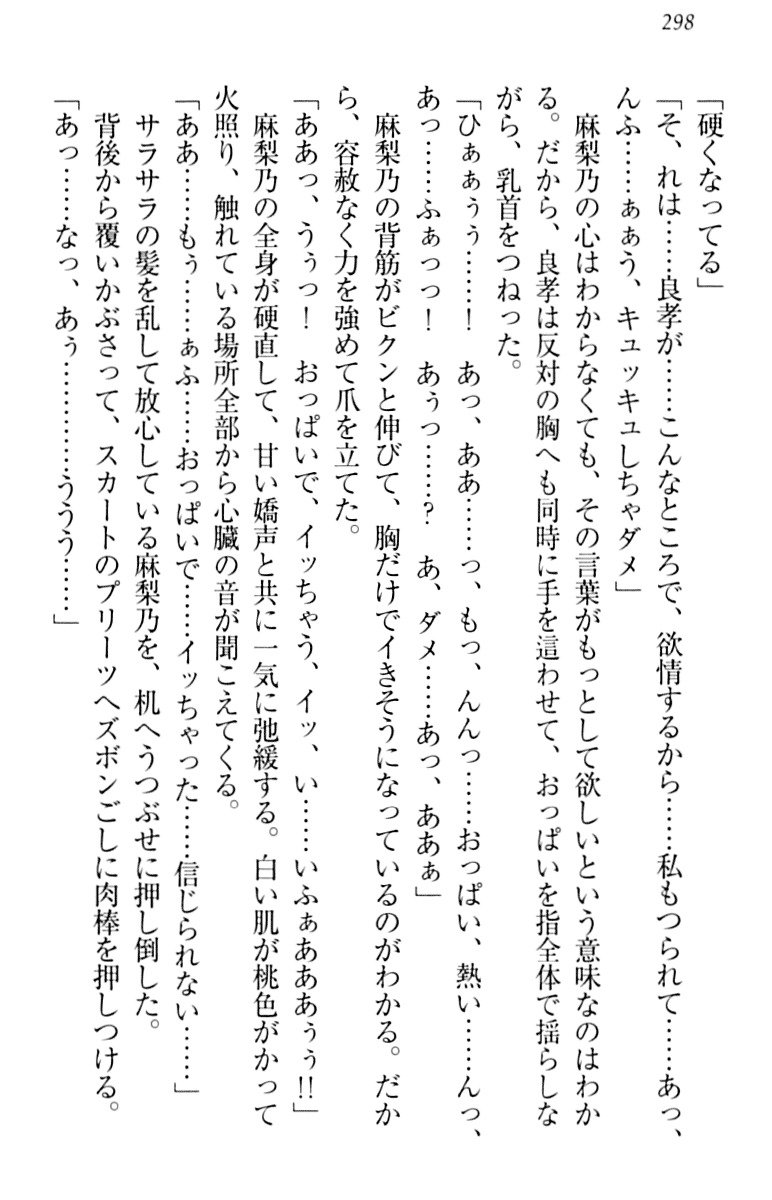 298
「硬くなってる」
「そ、れは……良孝が……こんなところで、欲情するから……私もつられて……あっ、
んふ……ぁぁう、キュッキュしちゃダメ」
麻梨乃の心はわからなくても、その言葉がもっとして欲しいという意味なのはわか
る。だから、良孝は反対の胸へも同時に手を這わせて、おっぱいを指全体で揺らしな
がら、乳首をつねった。
「ひぁぁぅぅ……！　あっ、ああ……っ、もっ、んんっ……おっぱい、熱い……んっ、
あっ……ふぁっっ！　あぅっ……？　あ、ダメ……あっ、ああぁ」
麻梨乃の背筋がビクンと伸びて、胸だけでイきそうになっているのがわかる。だか
ら、容赦なく力を強めて爪を立てた。
「ああっ、うぅっ！　おっぱいで、イッちゃう、イッ、い……いふぁあああぅぅ!!」
麻梨乃の全身が硬直して、甘い嬌声と共に一気に弛緩する。白い肌が桃色がかって
火照り、触れている場所全部から心臓の音が聞こえてくる。
「ああ……もぅ……ぁふ……おっぱいで……イッちゃった……信じられない……」
サラサラの髪を乱して放心している麻梨乃を、机へうつぶせに押し倒した。
背後から覆いかぶさって、スカートのプリーツへズボンごしに肉棒を押しつける。
「あっ……なっ、あぅ…………ううう……」